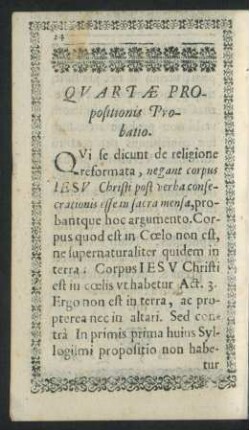 24
QVARTÆ PRO-
positionis Pro-
batio.
QVi se dicunt de religione
reformata, negant corpus
IESV Christi post verba conse-
crationis esse in sacra mensa, pro-
bantque hoc argumento. Cor-
pus quod est in Cœlo non est,
ne supernaturaliter quidem in
terra: Corpus IESV Christi
est in cœlis vt habetur Act. 3.
Ergo non est in terra, ac pro-
pterea nec in altari. Sed con-
trà In primis prima huius Syl-
logismi propositio non habe-
tur